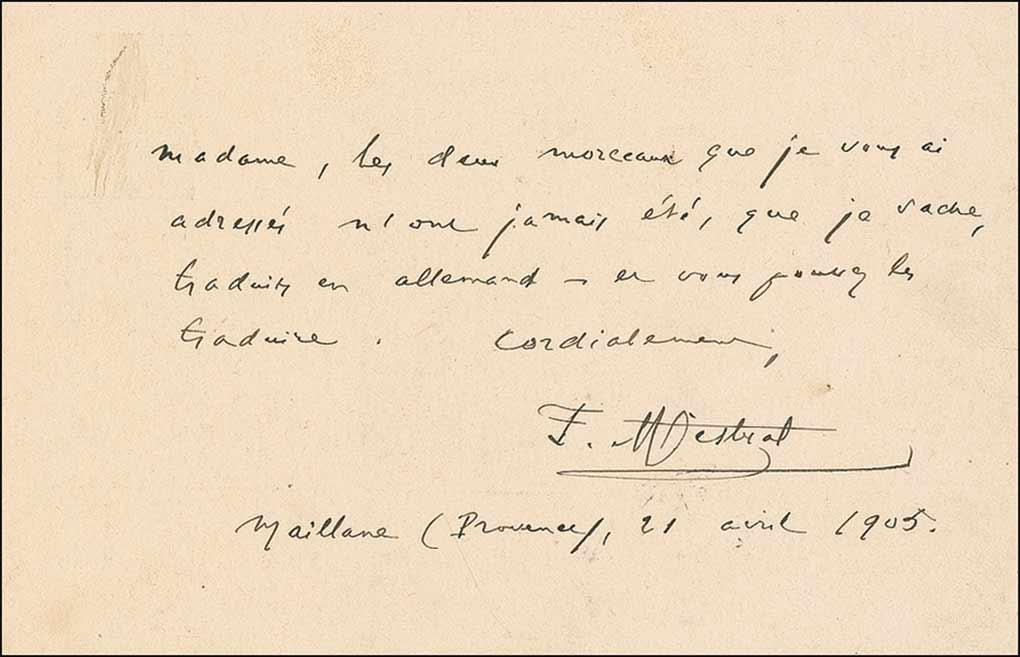 Madame, les deux morceaux que je vous ai
adressés n'ont jamais été, que je sache,
traduits en allemand – et vous pouvez les
traduire. Cordialement,
F. Mistral
Maillane (Provence), 21 avril 1905.